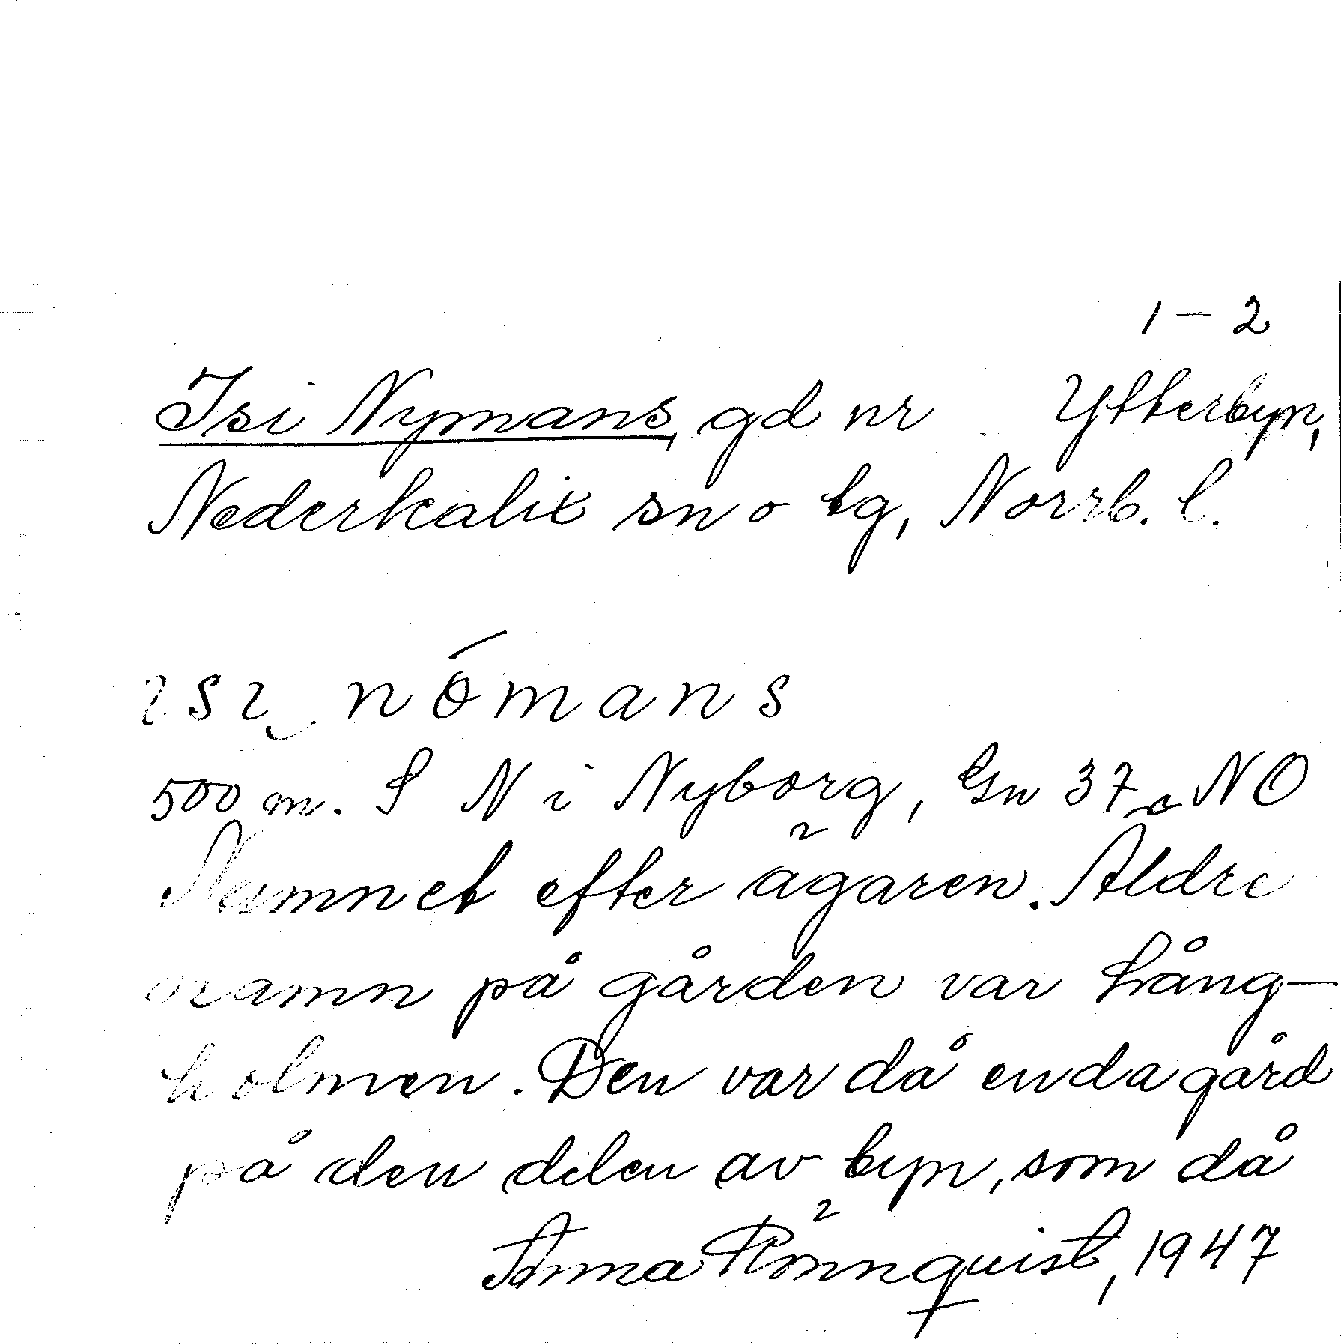 1–2
Isi Nymans, gd nr Ytterbyn,
Nederkalix sn o tg, Norrb. l.
ısı nömans
500 m. S N i Nyborg, Gn 37 c NO
Namnet efter ägaren. Äldre
namn på gården var Lång-
holmen. Den var då enda gård
på den delen av byn, som då
Anna Rönnquist, 1947